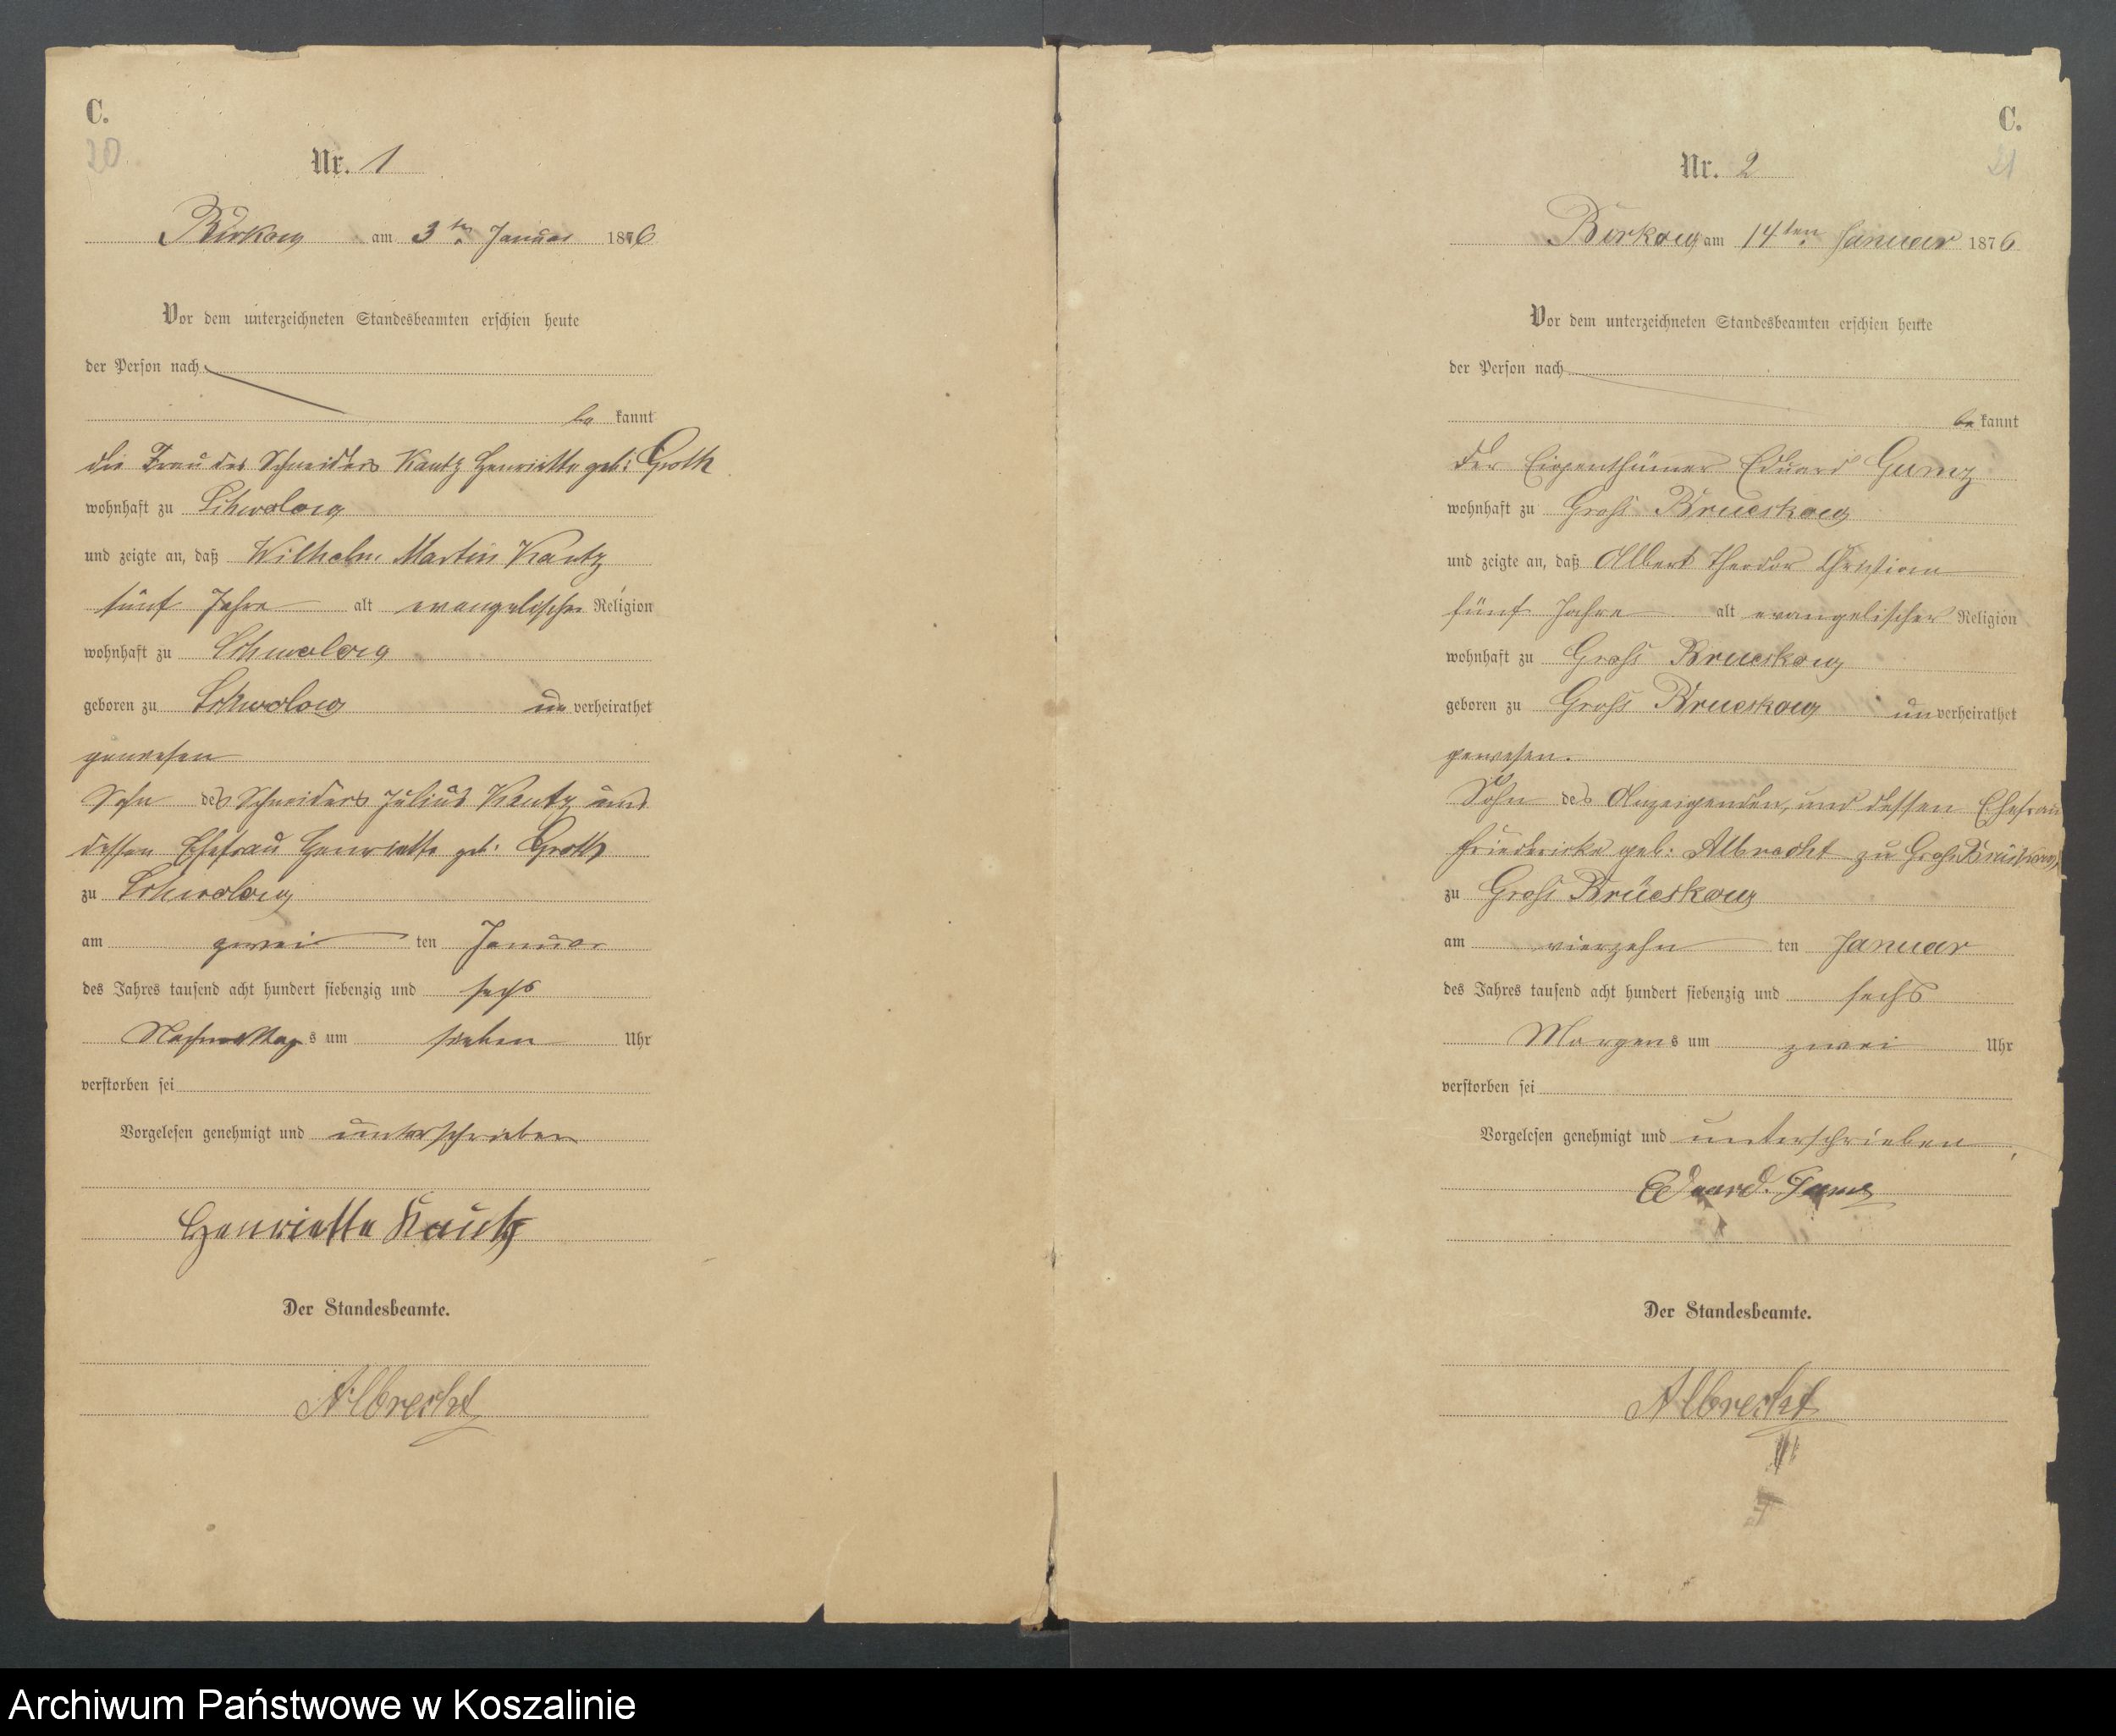 C.
20
Nr. 1
Birkow am 3ten Januar 1876
Vor dem unterzeichneten Standesbeamten erschien heute
der Person nach
be kannt
die Frau des Schneiders Kautz Henriette geb: Groth
wohnhaft zu Schwolow
und zeigte an, daß Wilhelm Martin Kautz
fünf Jahre alt evangelischer Religion
wohnhaft zu Schwolow
geboren zu Schwolow un verheirathet
gewesen
Sohn des Schneiders Julius Kautz und
dessen Ehefrau Henriette geb. Groth
zu Schwolow
am zwei ten Januar
des Jahres tausend acht hundert siebenzig und sechs
Nachmittag s um sieben Uhr
verstorben sei
Vorgelesen genehmigt und unterschrieben
Henriette Kautz
Der Standesbeamte.
Albrecht
C.
21
Nr. 2
Birkow am 14ten Januar 1876
Vor dem unterzeichneten Standesbeamten erschien heute
der Person nach
be kannt
der Eigenthümer Eduard Gumz
wohnhaft zu Groß Brueskow
und zeigte an, daß Albert Theodor Christian
fünf Jahre alt evangelischer Religion
wohnhaft zu Groß Brueskow
geboren zu Groß Brueskow un verheirathet
gewesen.
Sohn des Anzeigenden, und dessen Ehefrau
Friedericke geb. Albrecht zu Groß Brüskow,
zu Groß Brüeskow
am vierzehn ten Januar
des Jahres tausend acht hundert siebenzig und sechs
Morgen s um zwei Uhr
verstorben sei
Vorgelesen genehmigt und unterschrieben
Eduard. Gumz
Der Standesbeamte.
Albrecht
Archiwum Państwowe w Koszalinie